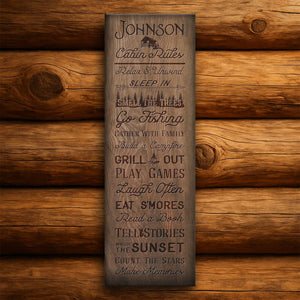 JOHNSON
Cabin Rules
Relax & Unwind
SLEEP IN
SMELL THE TREES
Go Fishing
GATHER WITH FAMILY
Build a Campfire
GRILL OUT
PLAY GAMES
Laugh Often
EAT S'MORES
Read a Book
TELL STORIES
THE SUNSET
COUNT THE STARS
Make Memories